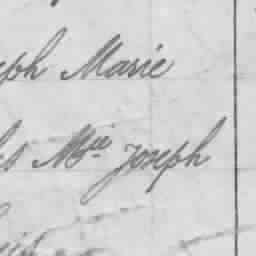 eph Marie
es Mie Joseph